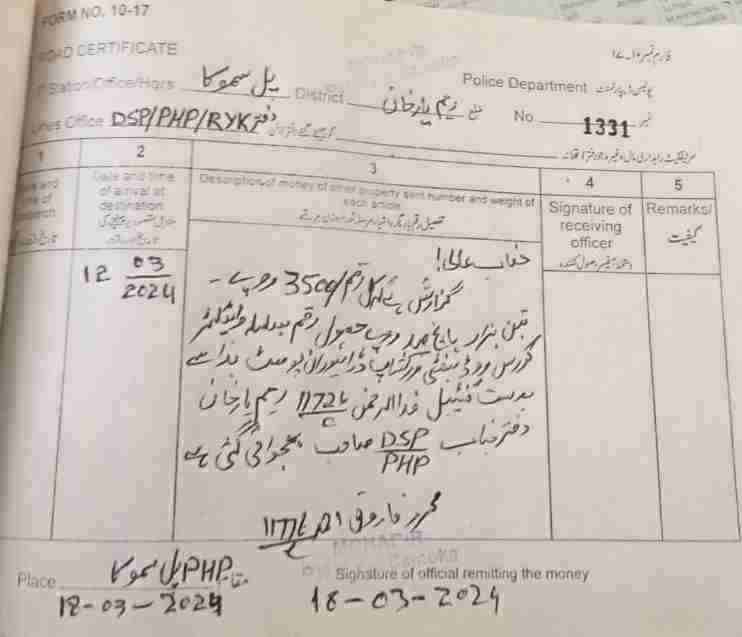 FORM NO. 10-17
فارم نمبر ۱۰-۱۷
ROAD CERTIFICATE
Police Department پولیس ڈیپارٹمنٹ
Station/Office/Hqrs پل سموکا District ضلع رحیم یار خان No. 1331 نمبر
Lines Office DSP/PHP/RYK دفتر
1 2 3 4 5
Date and time of arrival at destination
Description of money of other property sent number and weight of each article
Signature of receiving officer
Remarks/
کیفیت
12 03/2024
جناب عالی!
گزارش ہے کل رقم /3500 روپے -
تین ہزار پانچ صد روپے وصول رقم بسلسلہ
کورس ورکشاپ ڈرائیوران پوسٹ ہذا سے
بدست کنسٹیبل 1172/C رحیم یار خان
دفتر جناب DSP/PHP صاحب بھجوائی گئی ہے
محرر فاروق احمد 1177/C
Place مقام PHP پل سموکا
Sighsture of official remitting the money
18-03-2024
18-03-2024